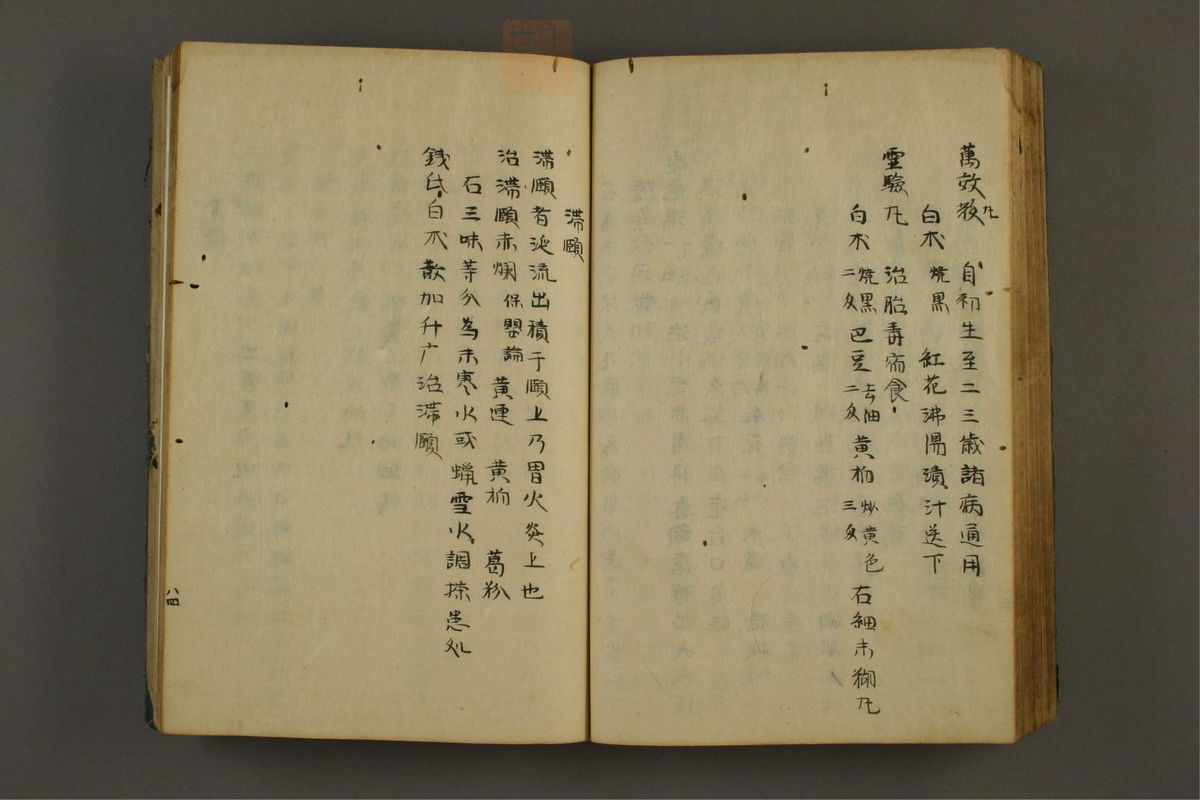 萬效散丸 自初生至二三歳諸病通用
白朮 焼黒 紅花沸湯漬汁送下
霊驗丸 治胎毒 食
白朮 焼黒 二匁 巴豆 去油 二匁 黄柏 炒黄色 三匁 右細末糊丸
滞頤
滞頤者涎流出積于頤上乃胃火炎上也
治滞頤赤爛 保嬰論 黄連 黄柏 葛粉
石三味等分為末寒水或蝋雪水調搽患処
銭氏白朮散加升广治滞頤
八四